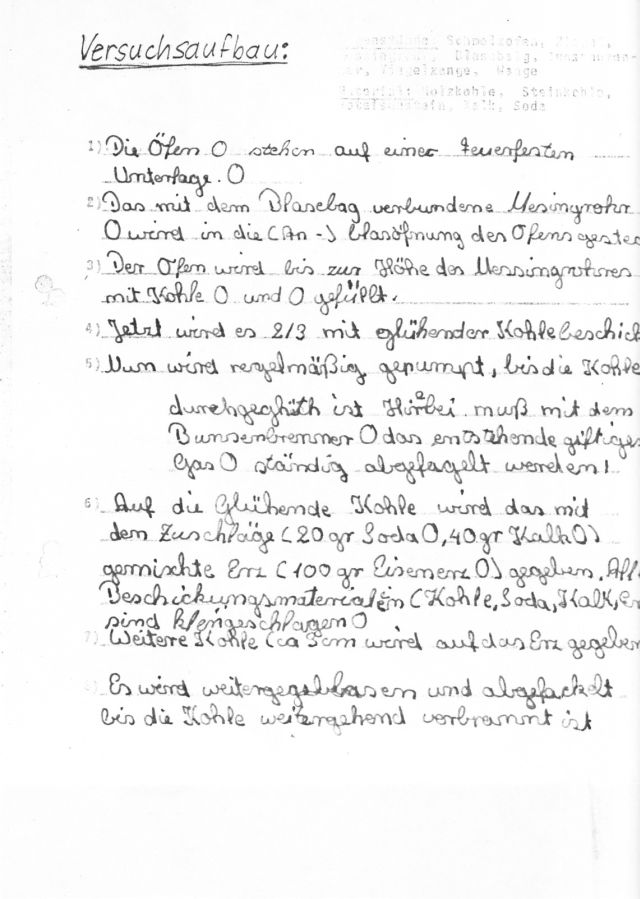 Versuchsaufbau:
Schmelzofen,
Blasebalg,
Tiegelzange, Waage
Material: Holzkohle, Steinkohle,
Kalk, Soda
1) Die Öfen O stehen auf einer feuerfesten
Unterlage. O
2) Das mit dem Blasebag verbundene Mesingrohr
O wird in die (An-) blasöfnung des Ofens gestec
3) Der Ofen wird bis zur Höhe des Messingrohres
mit Kohle O und O gefüllt.
4) Jetzt wird es 2/3 mit glühender Kohle beschick
5) Nun wird regelmäßig gepumpt, bis die Kohle
durchgeglüth ist Hirbei muß mit dem
Bunsenbrenner O das entstehende giftiges
Gas O ständig abgefagelt werden!
6) Auf die Glühende Kohle wird das mit
dem Zuschläge (20 gr Soda O, 40 gr Kalk O)
gemischte Erz (100 gr Eisenerz O) gegeben. All
Beschickungsmaterialen (Kohle, Soda, Kalk, Er
sind kleingeschlagen O
7) Weitere Kohle (ca 3cm wird auf das Erz gegeben
Es wird weitergegeblasen und abgefackelt
bis die Kohle weitergehend verbrannt ist